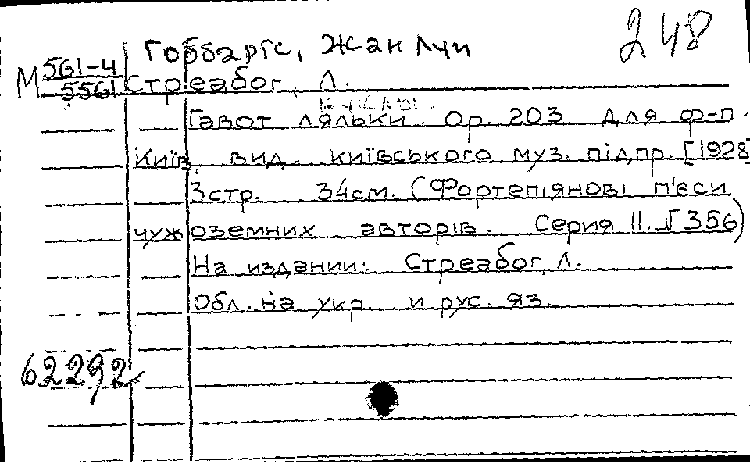 248
Гоббаргс, Жан Луи
М 561-4
5561
Стреабог, Л.
Гавот ляльки. Ор. 203 для ф-п.
Київ, вид. київського муз. підпр. [1928]
3стр. 34см. (Фортепіянові п'єси
чужоземних авторів. Серия II. №356)
На издании: Стреабог, Л.
Обл. на укр. и рус. яз.
62292